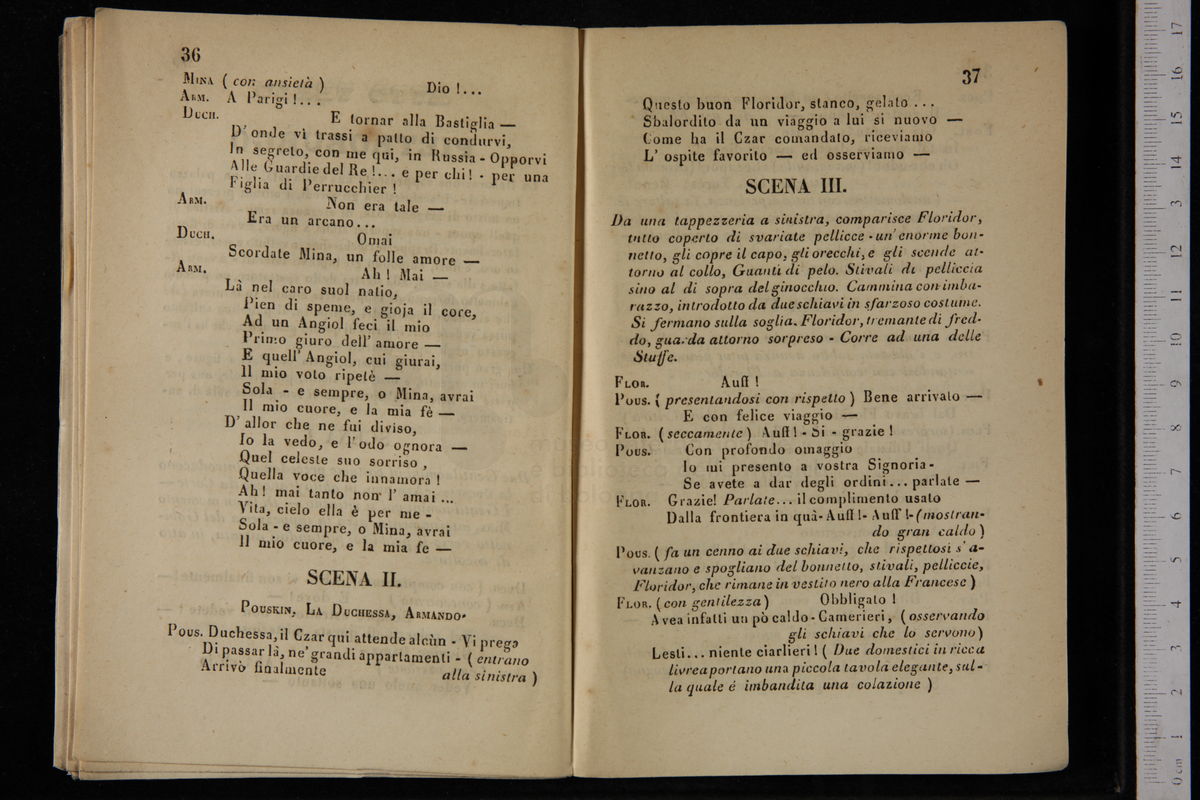 36
MINA ( con ansietà ) Dio !...
ARM. A Parigi !...
DUCH. E tornar alla Bastiglia —
D' onde vi trassi a patto di condurvi,
In segreto, con me qui, in Russia - Opporvi
Alle Guardie del Re !... e per chi! - per una
Figlia di Perrucchier !
ARM. Non era tale —
Era un arcano...
DUCH. Omai
Scordate Mina, un folle amore —
ARM. Ah ! Mai —
Là nel caro suol natio,
Pien di speme, e gioja il core,
Ad un Angiol feci il mio
Primo giuro dell' amore —
E quell' Angiol, cui giurai,
Il mio voto ripetè —
Sola - e sempre, o Mina, avrai
Il mio cuore, e la mia fè —
D' allor che ne fui diviso,
Io la vedo, e l' odo ognora —
Quel celeste suo sorriso ,
Quella voce che innamora !
Ah! mai tanto non l' amai ...
Vita, cielo ella è per me -
Sola - e sempre, o Mina, avrai
Il mio cuore, e la mia fe —
SCENA II.
POUSKIN, LA DUCHESSA, ARMANDO.
POUS. Duchessa, il Czar qui attende alcùn - Vi prego
Di passar là, ne' grandi appartamenti - ( entrano
Arrivò finalmente alla sinistra )
37
Questo buon Floridor, stanco, gelato ...
Sbalordito da un viaggio a lui si nuovo —
Come ha il Czar comandato, riceviamo
L' ospite favorito — ed osserviamo —
SCENA III.
Da una tappezzeria a sinistra, comparisce Floridor,
tutto coperto di svariate pellicce - un' enorme bon-
netto, gli copre il capo, gli orecchi, e gli scende at-
torno al collo, Guanti di pelo. Stivali di pelliccia
sino al di sopra del ginocchio. Cammina con imba-
razzo, introdotto da due schiavi in sfarzoso costume.
Si fermano sulla soglia. Floridor, tremante di fred-
do, guarda attorno sorpreso - Corre ad una delle
Stuffe.
FLOR. Auff !
POUS. ( presentandosi con rispetto ) Bene arrivato —
E con felice viaggio —
FLOR. ( seccamente ) Auff ! - Si - grazie !
POUS. Con profondo omaggio
Io mi presento a vostra Signoria -
Se avete a dar degli ordini... parlate —
FLOR. Grazie! Parlate... il complimento usato
Dalla frontiera in quà - Auff !- Auff !- (mostran-
do gran caldo )
POUS. ( fa un cenno ai due schiavi, che rispettosi s' a-
vanzano e spogliano del bonnetto, stivali, pelliccie,
Floridor, che rimane in vestito nero alla Francese )
FLOR. ( con gentilezza ) Obbligato !
Avea infatti un pò caldo - Camerieri, ( osservando
gli schiavi che lo servono )
Lesti... niente ciarlieri ! ( Due domestici in ricca
livrea portano una piccola tavola elegante, sul-
la quale é imbandita una colazione )